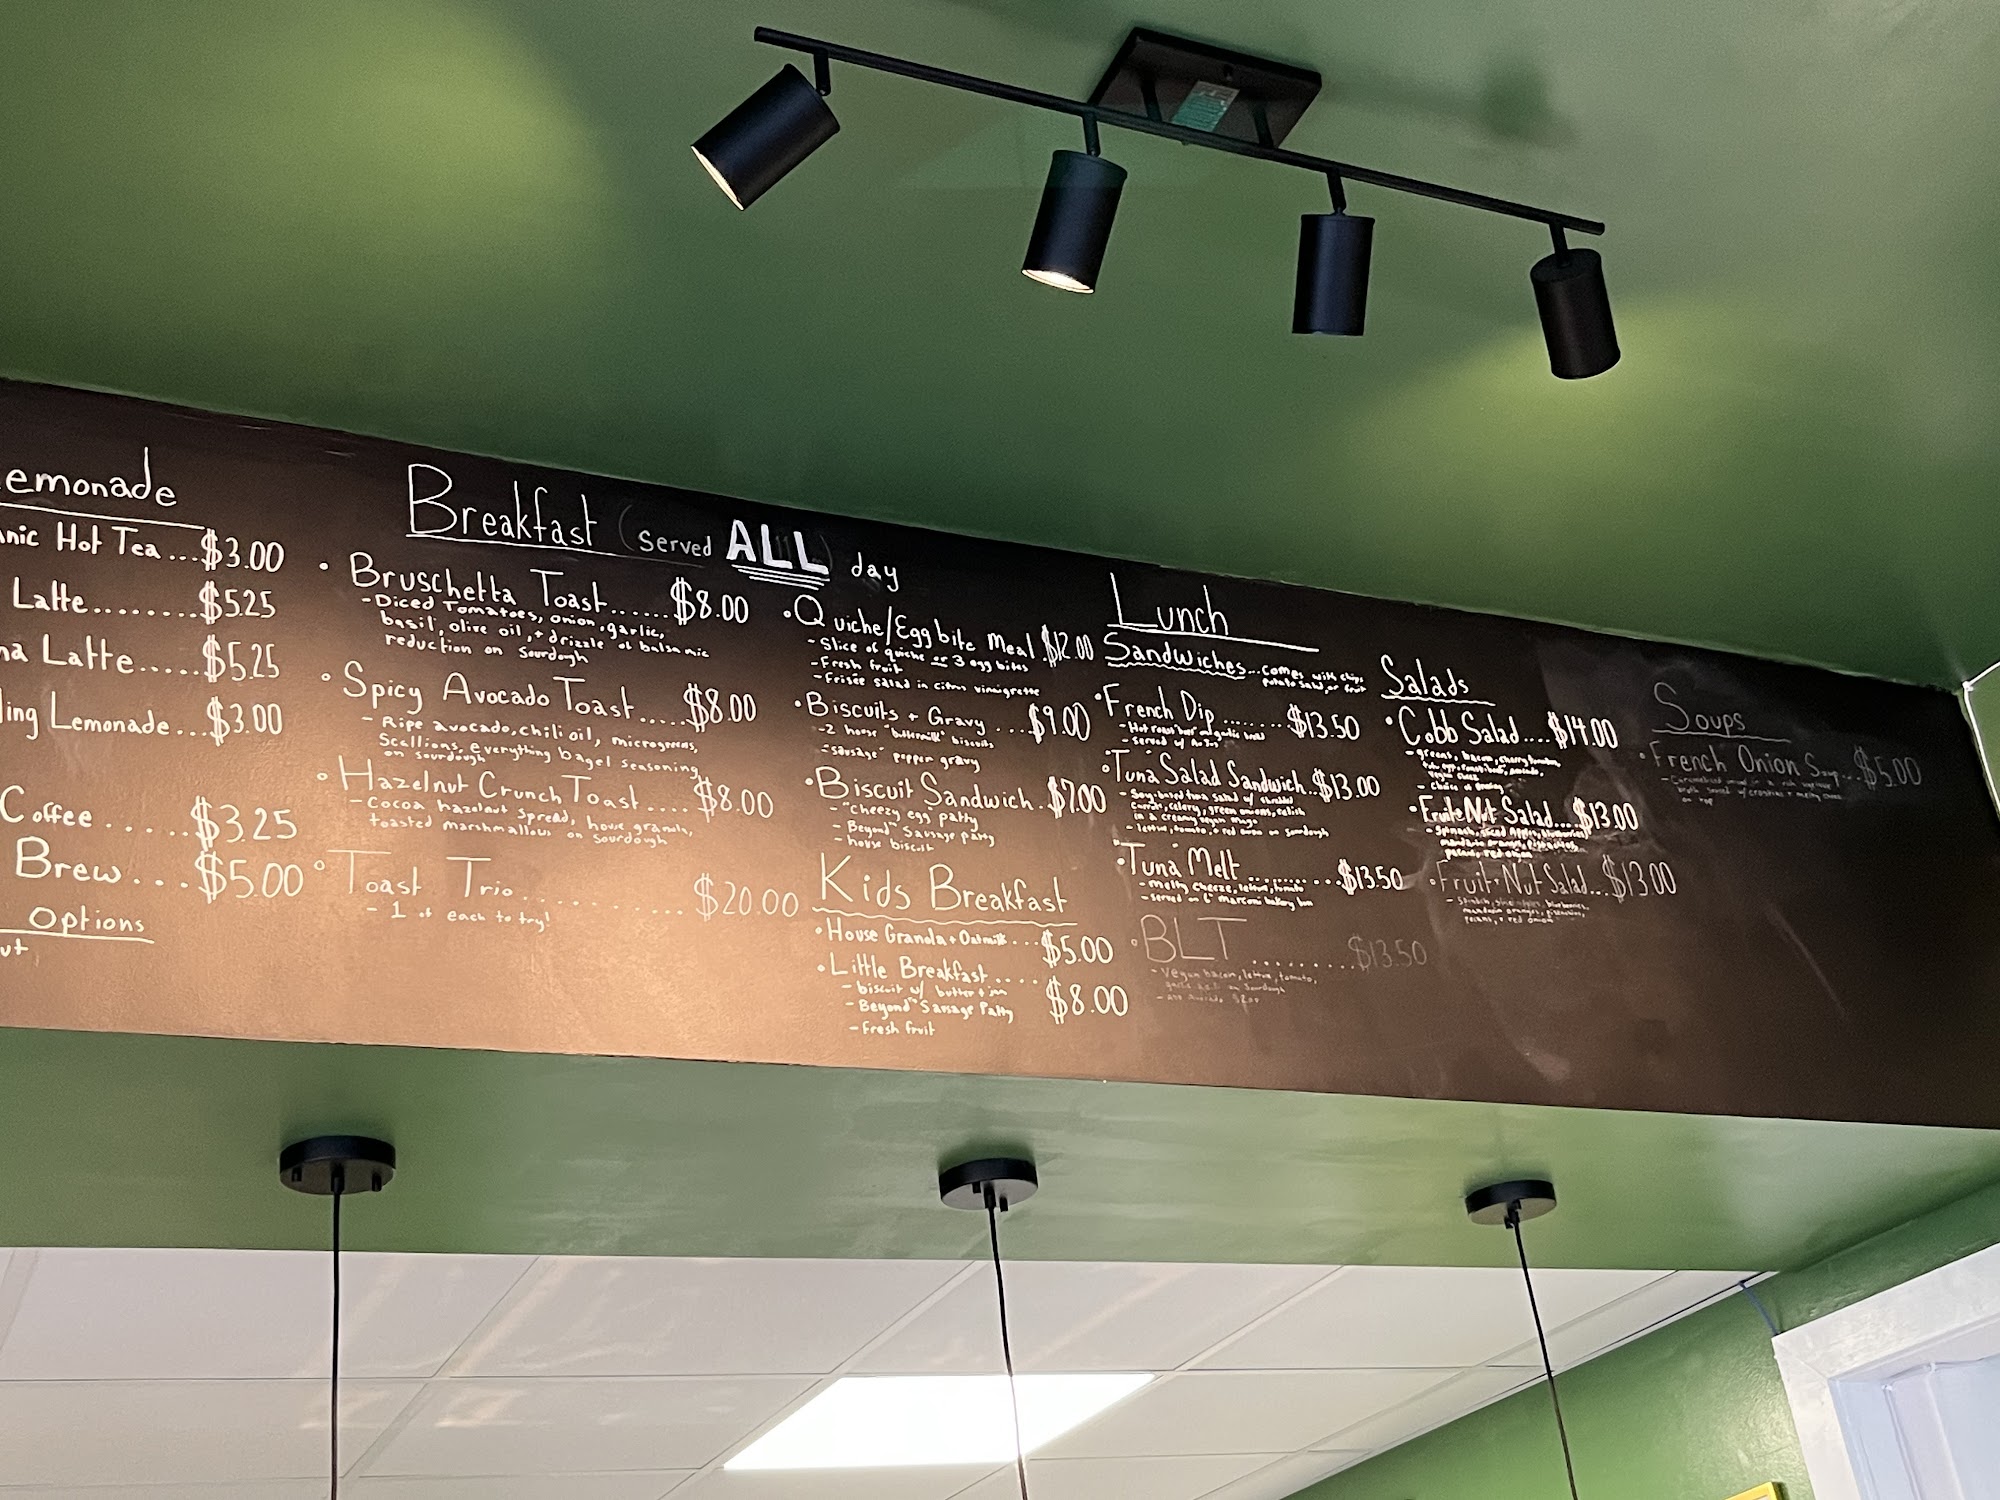 emonade
nic Hot Tea...$3.00
Latte........$5.25
na Latte.....$5.25
ling Lemonade...$3.00
Coffee.....$3.25
Brew...$5.00
Options
ut
Breakfast (Served ALL day
• Bruschetta Toast......$8.00
- Diced Tomatoes, onion, garlic,
basil, olive oil, + drizzle of balsamic
reduction on Sourdough
• Spicy Avocado Toast.....$8.00
- Ripe avocado, chili oil, microgreens,
Scallions, everything bagel seasoning
on sourdough
• Hazelnut Crunch Toast....$8.00
- Cocoa hazelnut spread, house granola,
toasted marshmallows on Sourdough
• Toast Trio............$20.00
- 1 of each to try!
• Quiche/Egg bite Meal $12.00
- Slice of quiche or 3 egg bites
- Fresh fruit
- Frisée salad in citrus vinaigrette
• Biscuits + Gravy....$9.00
- 2 house "buttermilk" biscuits
- "sausage" pepper gravy
• Biscuit Sandwich..$7.00
- "Cheezy egg patty
- Beyond™ Sausage Patty
- house biscuit
Kids Breakfast
• House Granola + Oatmilk...$5.00
• Little Breakfast.... $8.00
- biscuit w/ butter + jam
- Beyond™ Sausage Patty
- Fresh fruit
Lunch
Sandwiches...comes with chips,
potato salad, or fruit
• French Dip........$13.50
- Hot roast beef on garlic bread
- Served w/ Au Jus
• Tuna Salad Sandwich..$13.00
- Soy-based tuna salad w/ shredded
carrots, celery, green onions, relish
in a creamy vegan mayo
- lettuce, tomato, + red onion on sourdough
• Tuna Melt.........$13.50
- melty cheeze, lettuce, tomato
- served on 6" Marconi bakery bun
• BLT.........$13.50
- Vegan bacon, lettuce, tomato,
on Sourdough
- Avocado $2.00
Salads
• Cobb Salad....$14.00
- greens, bacon, cherry tomatoes,
- Choice of dressing
• Fruit + Nut Salad...$13.00
- Spinach, sliced apples, blueberries,
mandarin oranges, pistachios,
pecans, + red onion
• Fruit + Nut Salad...$13.00
- Spinach, sliced apples, blueberries,
mandarin oranges, pistachios,
pecans, + red onion
Soups
• French Onion Soup...$5.00
- Caramelized onion in a rich
broth served w/ croutons + melty cheeze
on top